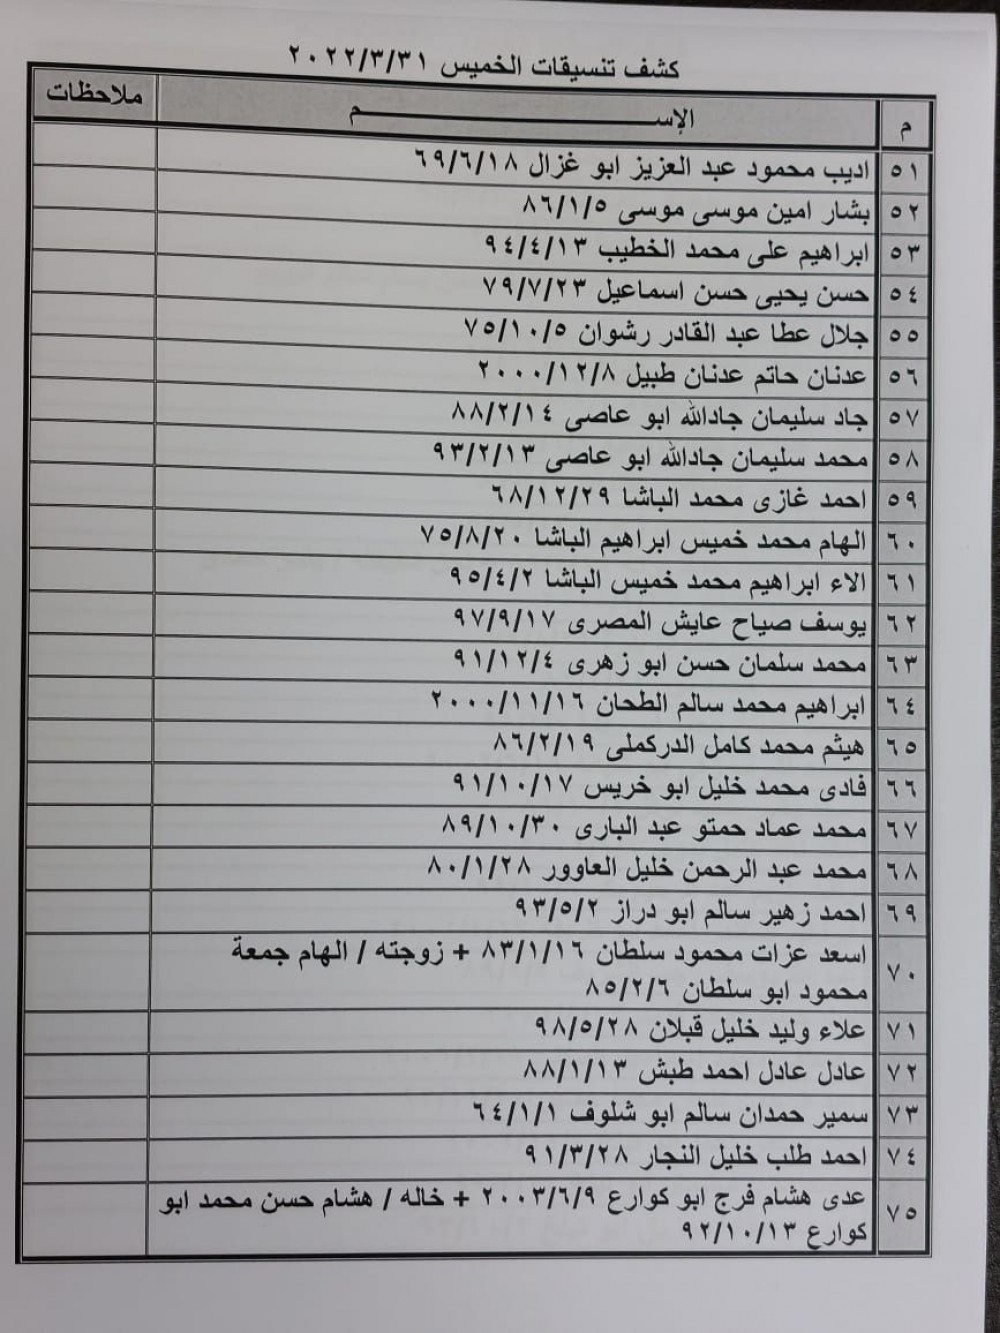 كشف تنسيقات الخميس ٢٠٢٢/٣/٣١
م الإســـــم ملاحظات
٥١ اديب محمود عبد العزيز ابو غزال ٦٩/٦/١٨
٥٢ بشار امين موسى موسى ٨٦/١/٥
٥٣ ابراهيم على محمد الخطيب ٩٤/٤/١٣
٥٤ حسن يحيى حسن اسماعيل ٧٩/٧/٢٣
٥٥ جلال عطا عبد القادر رشوان ٧٥/١٠/٥
٥٦ عدنان حاتم عدنان طبيل ٢٠٠٠/١٢/٨
٥٧ جاد سليمان جادالله ابو عاصى ٨٨/٢/١٤
٥٨ محمد سليمان جادالله ابو عاصى ٩٣/٢/١٣
٥٩ احمد غازى محمد الباشا ٦٨/١٢/٢٩
٦٠ الهام محمد خميس ابراهيم الباشا ٧٥/٨/٢٠
٦١ الاء ابراهيم محمد خميس الباشا ٩٥/٤/٢
٦٢ يوسف صياح عايش المصرى ٩٧/٩/١٧
٦٣ محمد سلمان حسن ابو زهرى ٩١/١٢/٤
٦٤ ابراهيم محمد سالم الطحان ٢٠٠٠/١١/١٦
٦٥ هيثم محمد كامل الدركملى ٨٦/٢/١٩
٦٦ فادى محمد خليل ابو خريس ٩١/١٠/١٧
٦٧ محمد عماد حمتو عبد البارى ٨٩/١٠/٣٠
٦٨ محمد عبد الرحمن خليل العاوور ٨٠/١/٢٨
٦٩ احمد زهير سالم ابو دراز ٩٣/٥/٢
٧٠ اسعد عزات محمود سلطان ٨٣/١/١٦ + زوجته / الهام جمعة
محمود ابو سلطان ٨٥/٢/٦
٧١ علاء وليد خليل قبلان ٩٨/٥/٢٨
٧٢ عادل عادل احمد طبش ٨٨/١/١٣
٧٣ سمير حمدان سالم ابو شلوف ٦٤/١/١
٧٤ احمد طلب خليل النجار ٩١/٣/٢٨
٧٥ عدى هشام فرج ابو كوارع ٢٠٠٣/٦/٩ + خاله / هشام حسن محمد ابو
كوارع ٩٢/١٠/١٣